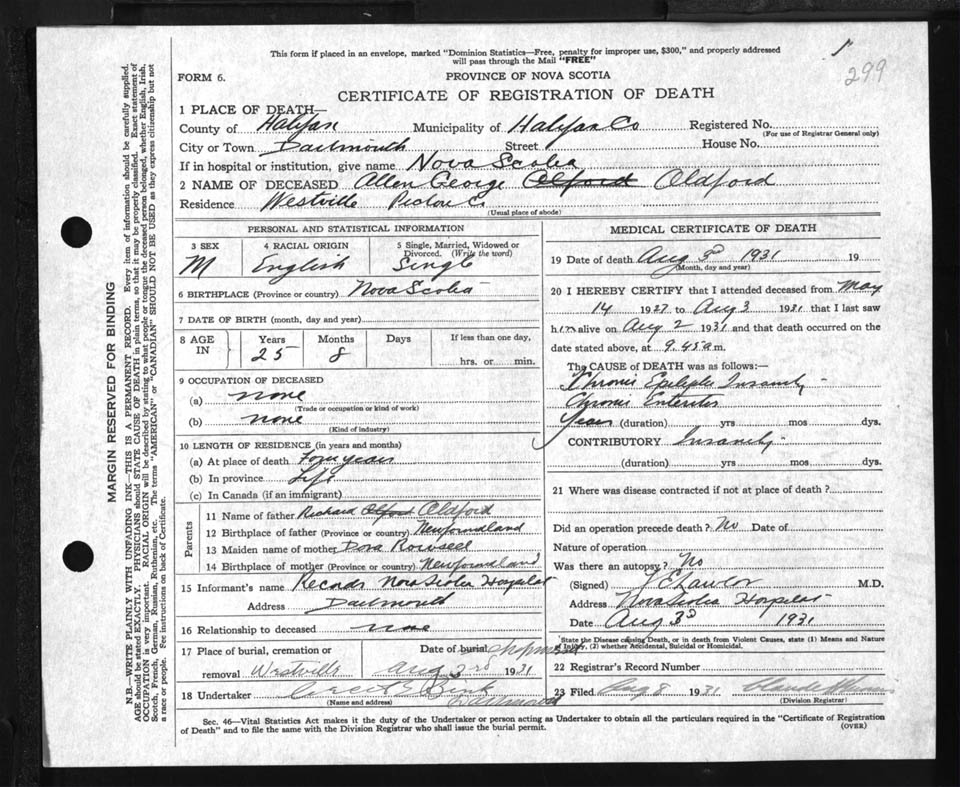 This form if placed in an envelope, marked "Dominion Statistics—Free, penalty for improper use, $300," and properly addressed
will pass through the Mail "FREE"
299
FORM 6.
PROVINCE OF NOVA SCOTIA
CERTIFICATE OF REGISTRATION OF DEATH
1 PLACE OF DEATH—
County of Halifax Municipality of Halifax Co Registered No.
(For use of Registrar General only)
City or Town Dartmouth Street House No.
If in hospital or institution, give name Nova Scotia
2 NAME OF DECEASED Allen George Olford Oldford
Residence Westville Pictou C.
(Usual place of abode)
PERSONAL AND STATISTICAL INFORMATION
3 SEX 4 RACIAL ORIGIN 5 Single, Married, Widowed or
Divorced. (Write the word)
M English Single
6 BIRTHPLACE (Province or country) Nova Scotia
7 DATE OF BIRTH (month, day and year)
8 AGE IN Years Months Days If less than one day,
25 8 hrs. or min.
9 OCCUPATION OF DECEASED
(a) none
(Trade or occupation or kind of work)
(b) none
(Kind of industry)
10 LENGTH OF RESIDENCE (in years and months)
(a) At place of death Four years
(b) In province Life
(c) In Canada (if an immigrant)
Parents
11 Name of father Richard Olford Oldford
12 Birthplace of father (Province or country) Newfoundland
13 Maiden name of mother Dora Rowsell
14 Birthplace of mother (Province or country) Newfoundland
15 Informant's name Records Nova Scotia Hospital
Address Dartmouth
16 Relationship to deceased none
17 Place of burial, cremation or Date of burial Shipment
removal Westville Aug 3rd 1931
18 Undertaker Dartmouth
(Name and address)
MEDICAL CERTIFICATE OF DEATH
19 Date of death Aug 3d 1931 19
(Month, day and year)
20 I HEREBY CERTIFY that I attended deceased from May
14 1927 to Aug 3 1931 that I last saw
him alive on Aug 2 1931 and that death occurred on the
date stated above, at 9.45 a m.
The CAUSE of DEATH was as follows:—
Chronic Epileptic Insanity -
Chronic Enteritis
Years (duration) yrs mos dys.
CONTRIBUTORY Insanity -
(duration) yrs mos dys.
21 Where was disease contracted if not at place of death?
Did an operation precede death? No Date of
Nature of operation
Was there an autopsy? No
(Signed) Lawlor M.D.
Address Nova Scotia Hospital
Date Aug 3d 1931
State the Disease causing Death, or in death from Violent Causes, state (1) Means and Nature
of Injury, (2) whether Accidental, Suicidal or Homicidal.
22 Registrar's Record Number
23 Filed Aug 8 1931
(Division Registrar)
Sec. 46—Vital Statistics Act makes it the duty of the Undertaker or person acting as Undertaker to obtain all the particulars required in the "Certificate of Registration
of Death" and to file the same with the Division Registrar who shall issue the burial permit. (OVER)
MARGIN RESERVED FOR BINDING
N.B.—WRITE PLAINLY WITH UNFADING INK—THIS IS A PERMANENT RECORD. Every item of information should be carefully supplied.
AGE should be stated EXACTLY. PHYSICIANS should STATE CAUSE OF DEATH in plain terms, so that it may be properly classified. Exact statement of
OCCUPATION is very important. RACIAL ORIGIN will be described by stating to what people or tongue the deceased person belonged, whether English, Irish,
Scotch, French, German, Russian, Ruthenian, etc. The terms "AMERICAN" or "CANADIAN" SHOULD NOT BE USED as they express citizenship but not
a race or people. See instructions on back of Certificate.